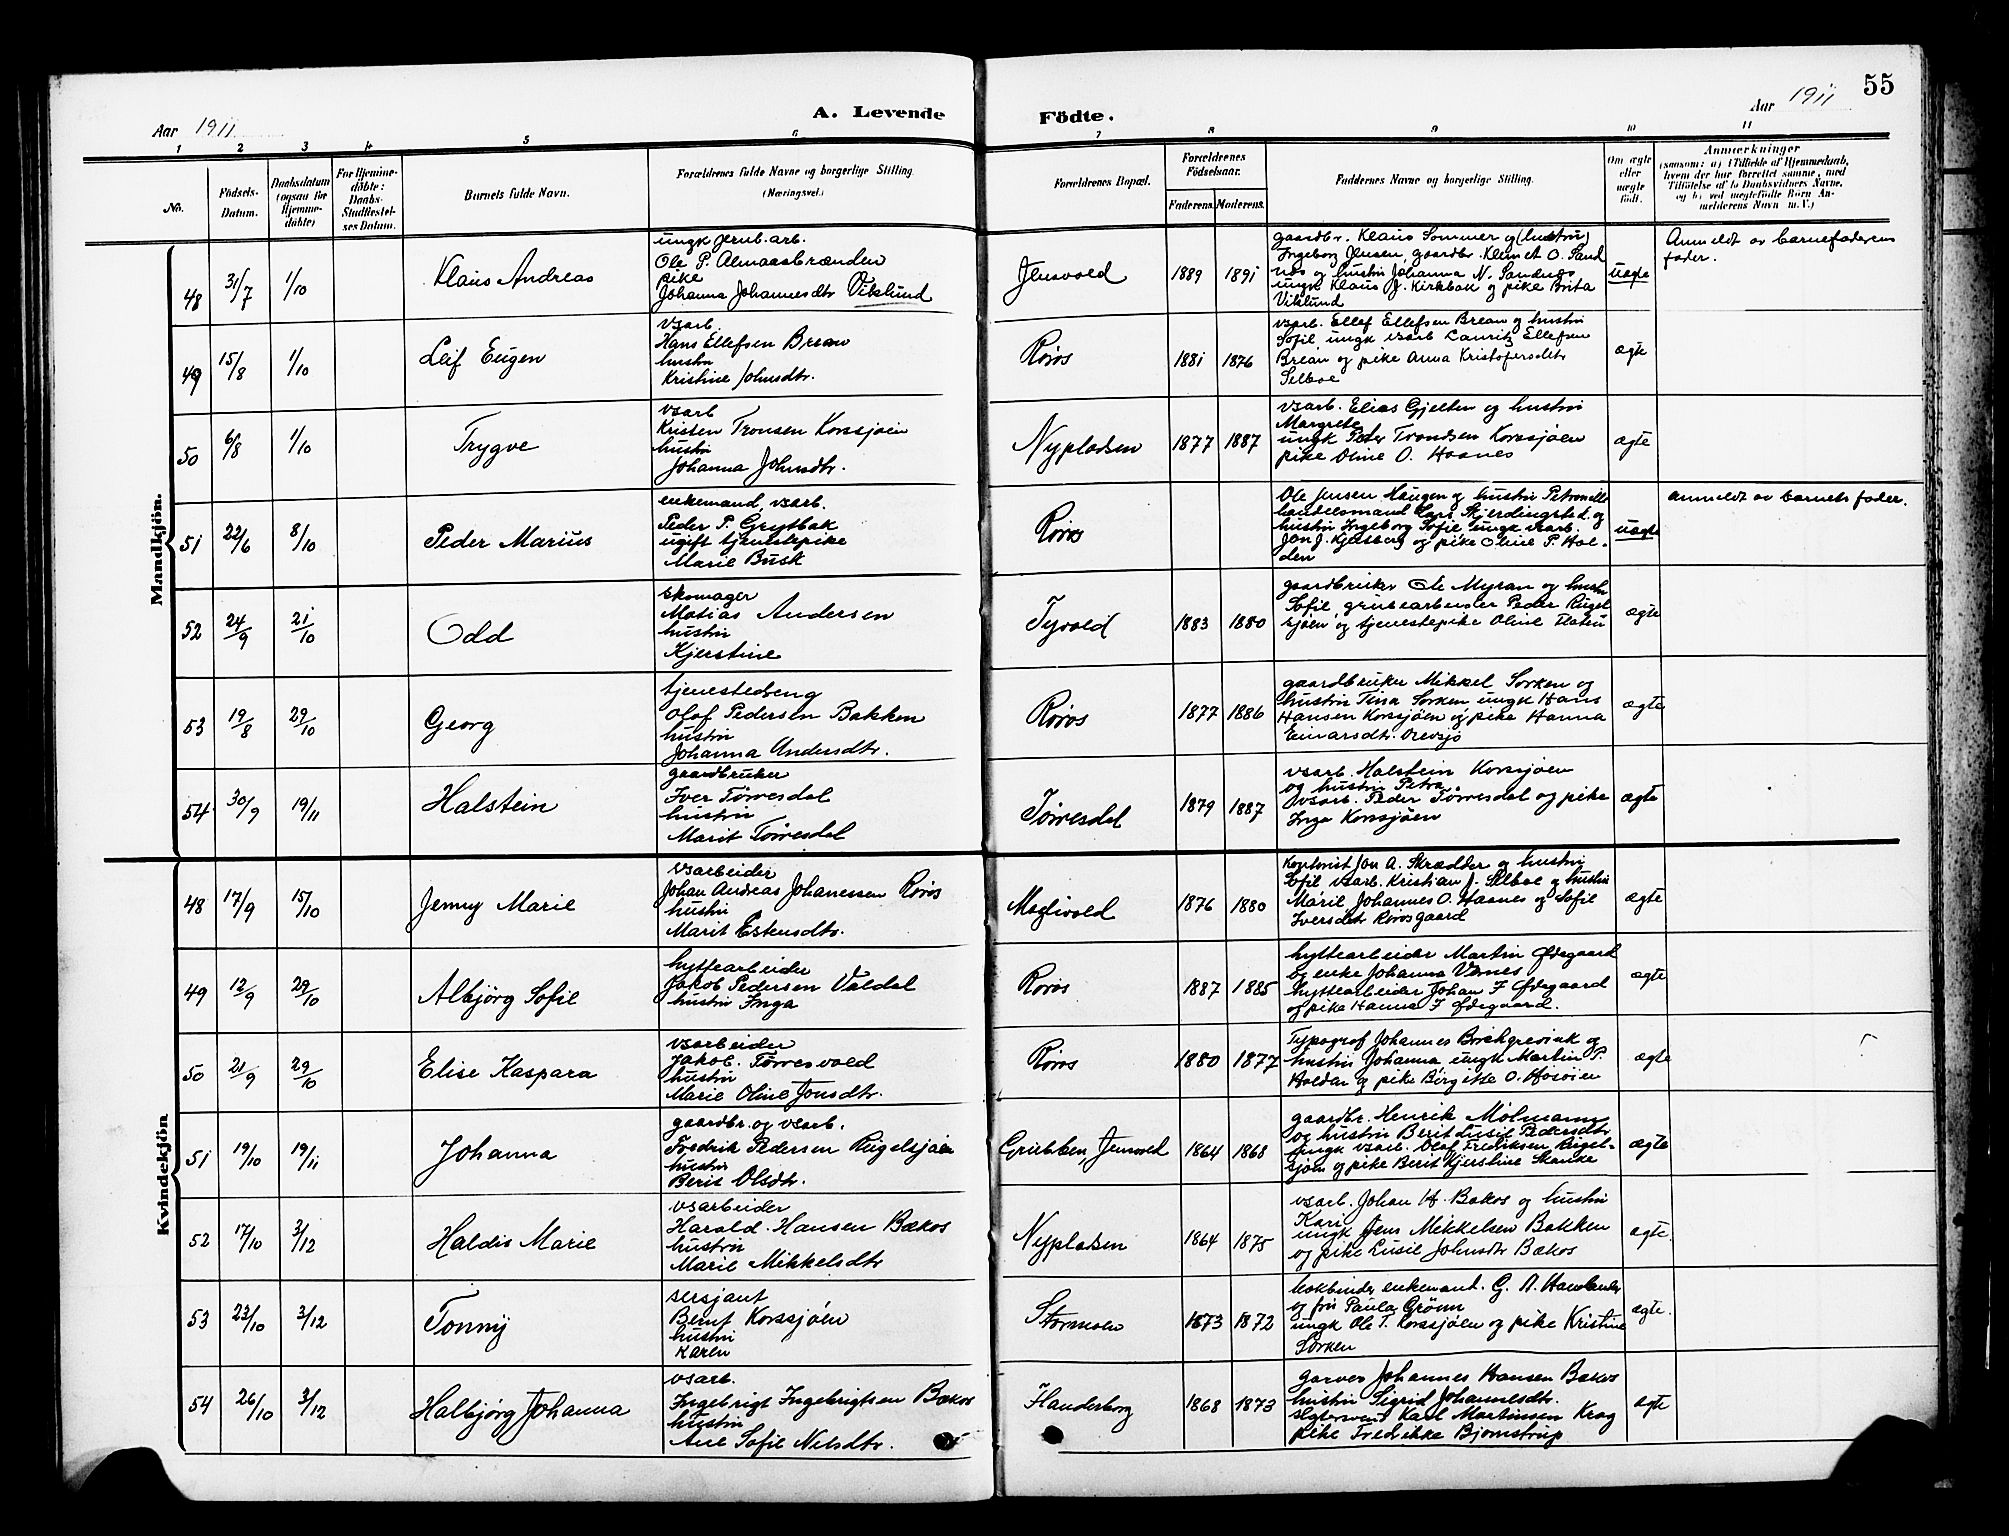 55
Aar 1911
A. Levende
Födte.
Aar 1911
1 2 3 4 5 6 7 8 9 10 11
No.
Födsels-
Datum.
Daabsdatum
(ogsaa for
Hjemme-
döbte)
For Hjemme-
döbte:
Daabs-
Stadfæstel-
ses Datum.
Barnets fulde Navn.
Forældrenes fulde Navne og borgerlige Stilling
(Næringsvei.)
Forældrenes Bopæl.
Forældrenes
Födselsaar.
Faderens. Moderens.
Faddernes Navne og borgerlige Stilling.
Om ægte
eller
uægte
födt.
Anmærkninger
(saasom: a) i Tilfælde af Hjemmedaab,
hvem der har forrettet samme, med
Tilföielse af to Daabsvidners Navne,
og b) ved uægtefödte Börn An-
melderens Navn m. V.)
Mandkjön.
48 31/7 1/10 Klaus Andreas
ungk jernb. arb.
Ole P. Almaasbrænden
pike
Johanna Johannesdtr Viklund
Jensvold 1889 1891
gaardbr. Klaus Sommer og (hustru)
Ingeborg Jensen, gaardbr. Klemet O. Sand
nes og hustru Johanna N. Sandnes
ungk Klaus J. Kirkbak og pike Brita
Viklund
uægte
Anmeldt av barnefaderens
fader.
49 15/8 1/10 Leif Eugen
vsarb.
Hans Ellefsen Brean
hustru
Kristine Johnsdtr.
Røros 1881 1876
vsarb. Ellef Ellefsen Brean og hustru
Sofie, ungk vsarb Lauritz Ellefsen
Brean og pike Anna Kristofersdtr
Selboe
ægte
50 6/8 1/10 Trygve
vsarb
Kristen Tronsen Korssjøen
hustru
Johanna Johnsdtr.
Nypladsen 1877 1887
vsarb. Elias Gjelten og hustru
Margrete
ungk Peder Trondsen Korssjøen
pike Oline O. Haanes
ægte
51 22/6 8/10 Peder Marius
enkemand, vsarb.
Peder P. Grytbak
ugift tjenestepike
Marie Busk
Røros
Ole Jensen Haugen og hustru Petronille
handelsmand Lars Skjerdingstad og
hustru Ingeborg Sofie ungk vsarb.
Jon J. Kjøsberg og pike Oline P. Hol-
den
uægte
anmeldt av barnets fader.
52 24/9 21/10 Odd
skomager
Matias Andersen
hustru
Kjerstine
Tyvold 1883 1880
gaardbruker Ole Myran og hustru
Sofie, grubearbeider Peder Rugel
sjøen og tjenestepike Oline
ægte
53 19/8 29/10 Georg
tjenestedreng
Olof Pedersen Bakken
hustru
Johanna Andersdtr.
Røros 1877 1886
gaardbruker Mikkel Sorken og
hustru Tina Sorken ungk Hans
Hansen Korssjøen og pike Hanna
Einarsdtr. Orvsjø
ægte
54 30/9 19/11 Halstein
gaardbruker
Iver Tørresdal
hustru
Marit Tørresdal
Tørresdal 1879 1887
vsarb. Halstein Korssjøen
og hustru Petra
vsarb. Peder Tørresdal og pike
Inga Korssjøen
ægte
Kvindekjön
48 17/9 15/10 Jenny Marie
vsarbeider
Johan Andreas Johanessen Røros
hustru
Marit Estensdtr.
Mølivold 1876 1880
kontorist Jon A. Skrædder og hustru
Sofie vsarb. Kristian J. Selboe og hustru
Marie Johannes O. Haanes og Sofie
Iversdtr Rørosgaard
ægte
49 12/9 29/10 Albjörg Sofie
hyttearbeider
Jakob Pedersen Valdal
hustru Inga
Røros 1887 1885
hyttearbeider Martin Ødegaard
og enke Johanna Vernes
hyttearbeider Johan F Ødegaard
og pike Hanna F Ødegaard.
ægte
50 21/9 29/10 Elise Kaspara
vsarbeider
Jakob. Tørresvold
hustru
Marie Oline Jonsdtr.
Røros 1880 1877
Typograf Johannes Borchgrevink og
hustru Johanna ungk Martin P.
Holdan og pike Birgitte O. Hosöien
ægte
51 19/10 19/11 Johanna
gaardbr. og vsarb.
Fredrik Pedersen Rugelsjøen
hustru
Berit Olsdtr.
Grubben, Jensvold 1864 1868
gaardbr. Henrik Molmann
og hustru Berit Lusie Pedersdtr
ungk vsarb. Olaf Fredriksen Rugel-
sjøen og pike Berit Kjerstine Skanke
ægte
52 17/10 3/12 Haldis Marie
vsarbeider
Harald. Hansen Bækos
hustru
Marie Mikkelsdtr
Nypladsen 1864 1875
vsarb. Johan H. Bækos og hustru
Kari
ungk Jens Mikkelsen Bakken
og pike Lusie Johnsdtr Bækos
ægte.
53 23/10 3/12 Tonny
sersjant
Bernt Korssjøen
hustru
Karen
Stormoen 1873 1872
bokbinder enkemand. G. A. Havelander
og fru Paula Grönn
ungk Ole T. Korssjøen og pike Kristine
Sorken
ægte.
54 26/10 3/12 Halbjørg Johanna
vsarb.
Ingebrigt Ingebrigtsen Bækos
hustru
Ane Sofie Nilsdtr.
Flanderborg 1868 1873
garver Johannes Hansen Bækos
hustru Sigrid Johannesdtr.
slagtersvend Karl Martinsen Krog
pike Fredrikke Bjørnstrup
ægte